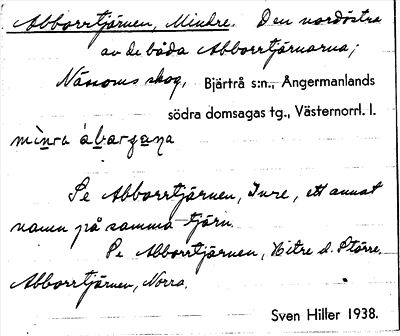 Abborrtjärnen, Mindre. Den nordöstra
av de båda Abborrtjärnarna;
Nässoms skog, Bjärtrå s:n., Ångermanlands
södra domsagas tg., Västernorrl. l.
mìnra ábarzɐna
Se Abborrtjärnen, Inre, ett annat
namn på samma tjärn.
Se Abborrtjärnen, Yttre d. Större.
Abborrtjärnen, Norra.
Sven Hiller 1938.